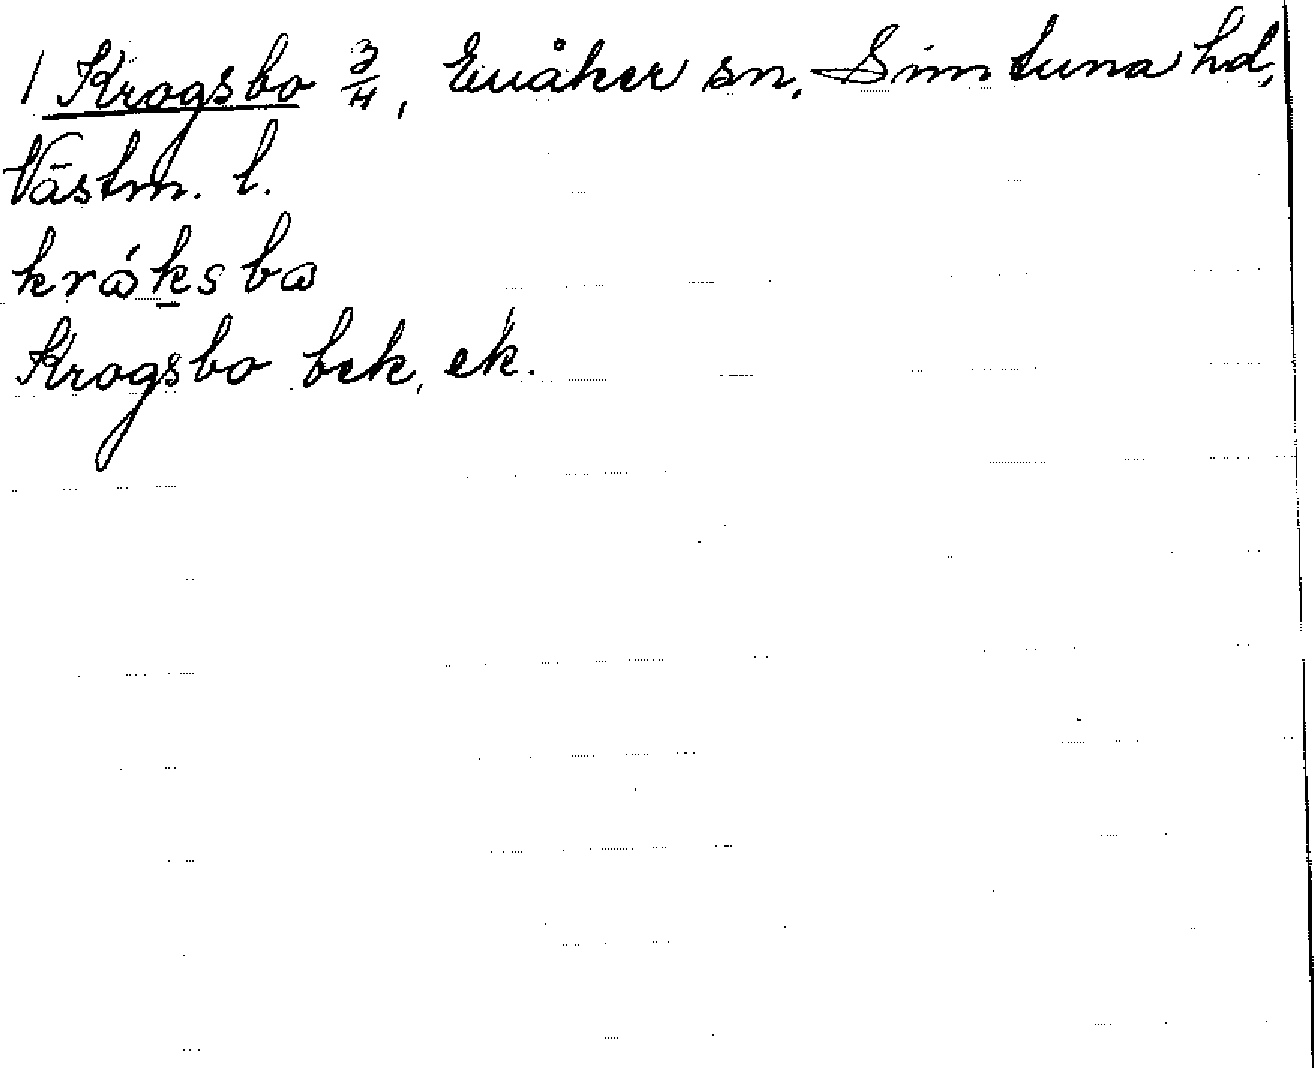 1 Krogsbo 3/4, Enåker sn, Simtuna hd,
Västm. l.
kráksba
Krogsbo bek, ek.